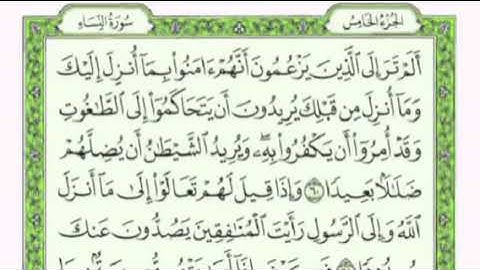 سُورَةُ النِّسَاءِ
الجُزْءُ الخَامِسُ
أَلَمْ تَرَ إِلَى ٱلَّذِينَ يَزْعُمُونَ أَنَّهُمْ ءَامَنُوا۟ بِمَآ أُنزِلَ إِلَيْكَ
وَمَآ أُنزِلَ مِن قَبْلِكَ يُرِيدُونَ أَن يَتَحَاكَمُوٓا۟ إِلَى ٱلطَّٰغُوتِ
وَقَدْ أُمِرُوٓا۟ أَن يَكْفُرُوا۟ بِهِۦ وَيُرِيدُ ٱلشَّيْطَٰنُ أَن يُضِلَّهُمْ
ضَلَٰلًۢا بَعِيدًا ۝٦٠ وَإِذَا قِيلَ لَهُمْ تَعَالَوْا۟ إِلَىٰ مَآ أَنزَلَ
ٱللَّهُ وَإِلَى ٱلرَّسُولِ رَأَيْتَ ٱلْمُنَٰفِقِينَ يَصُدُّونَ عَنكَ